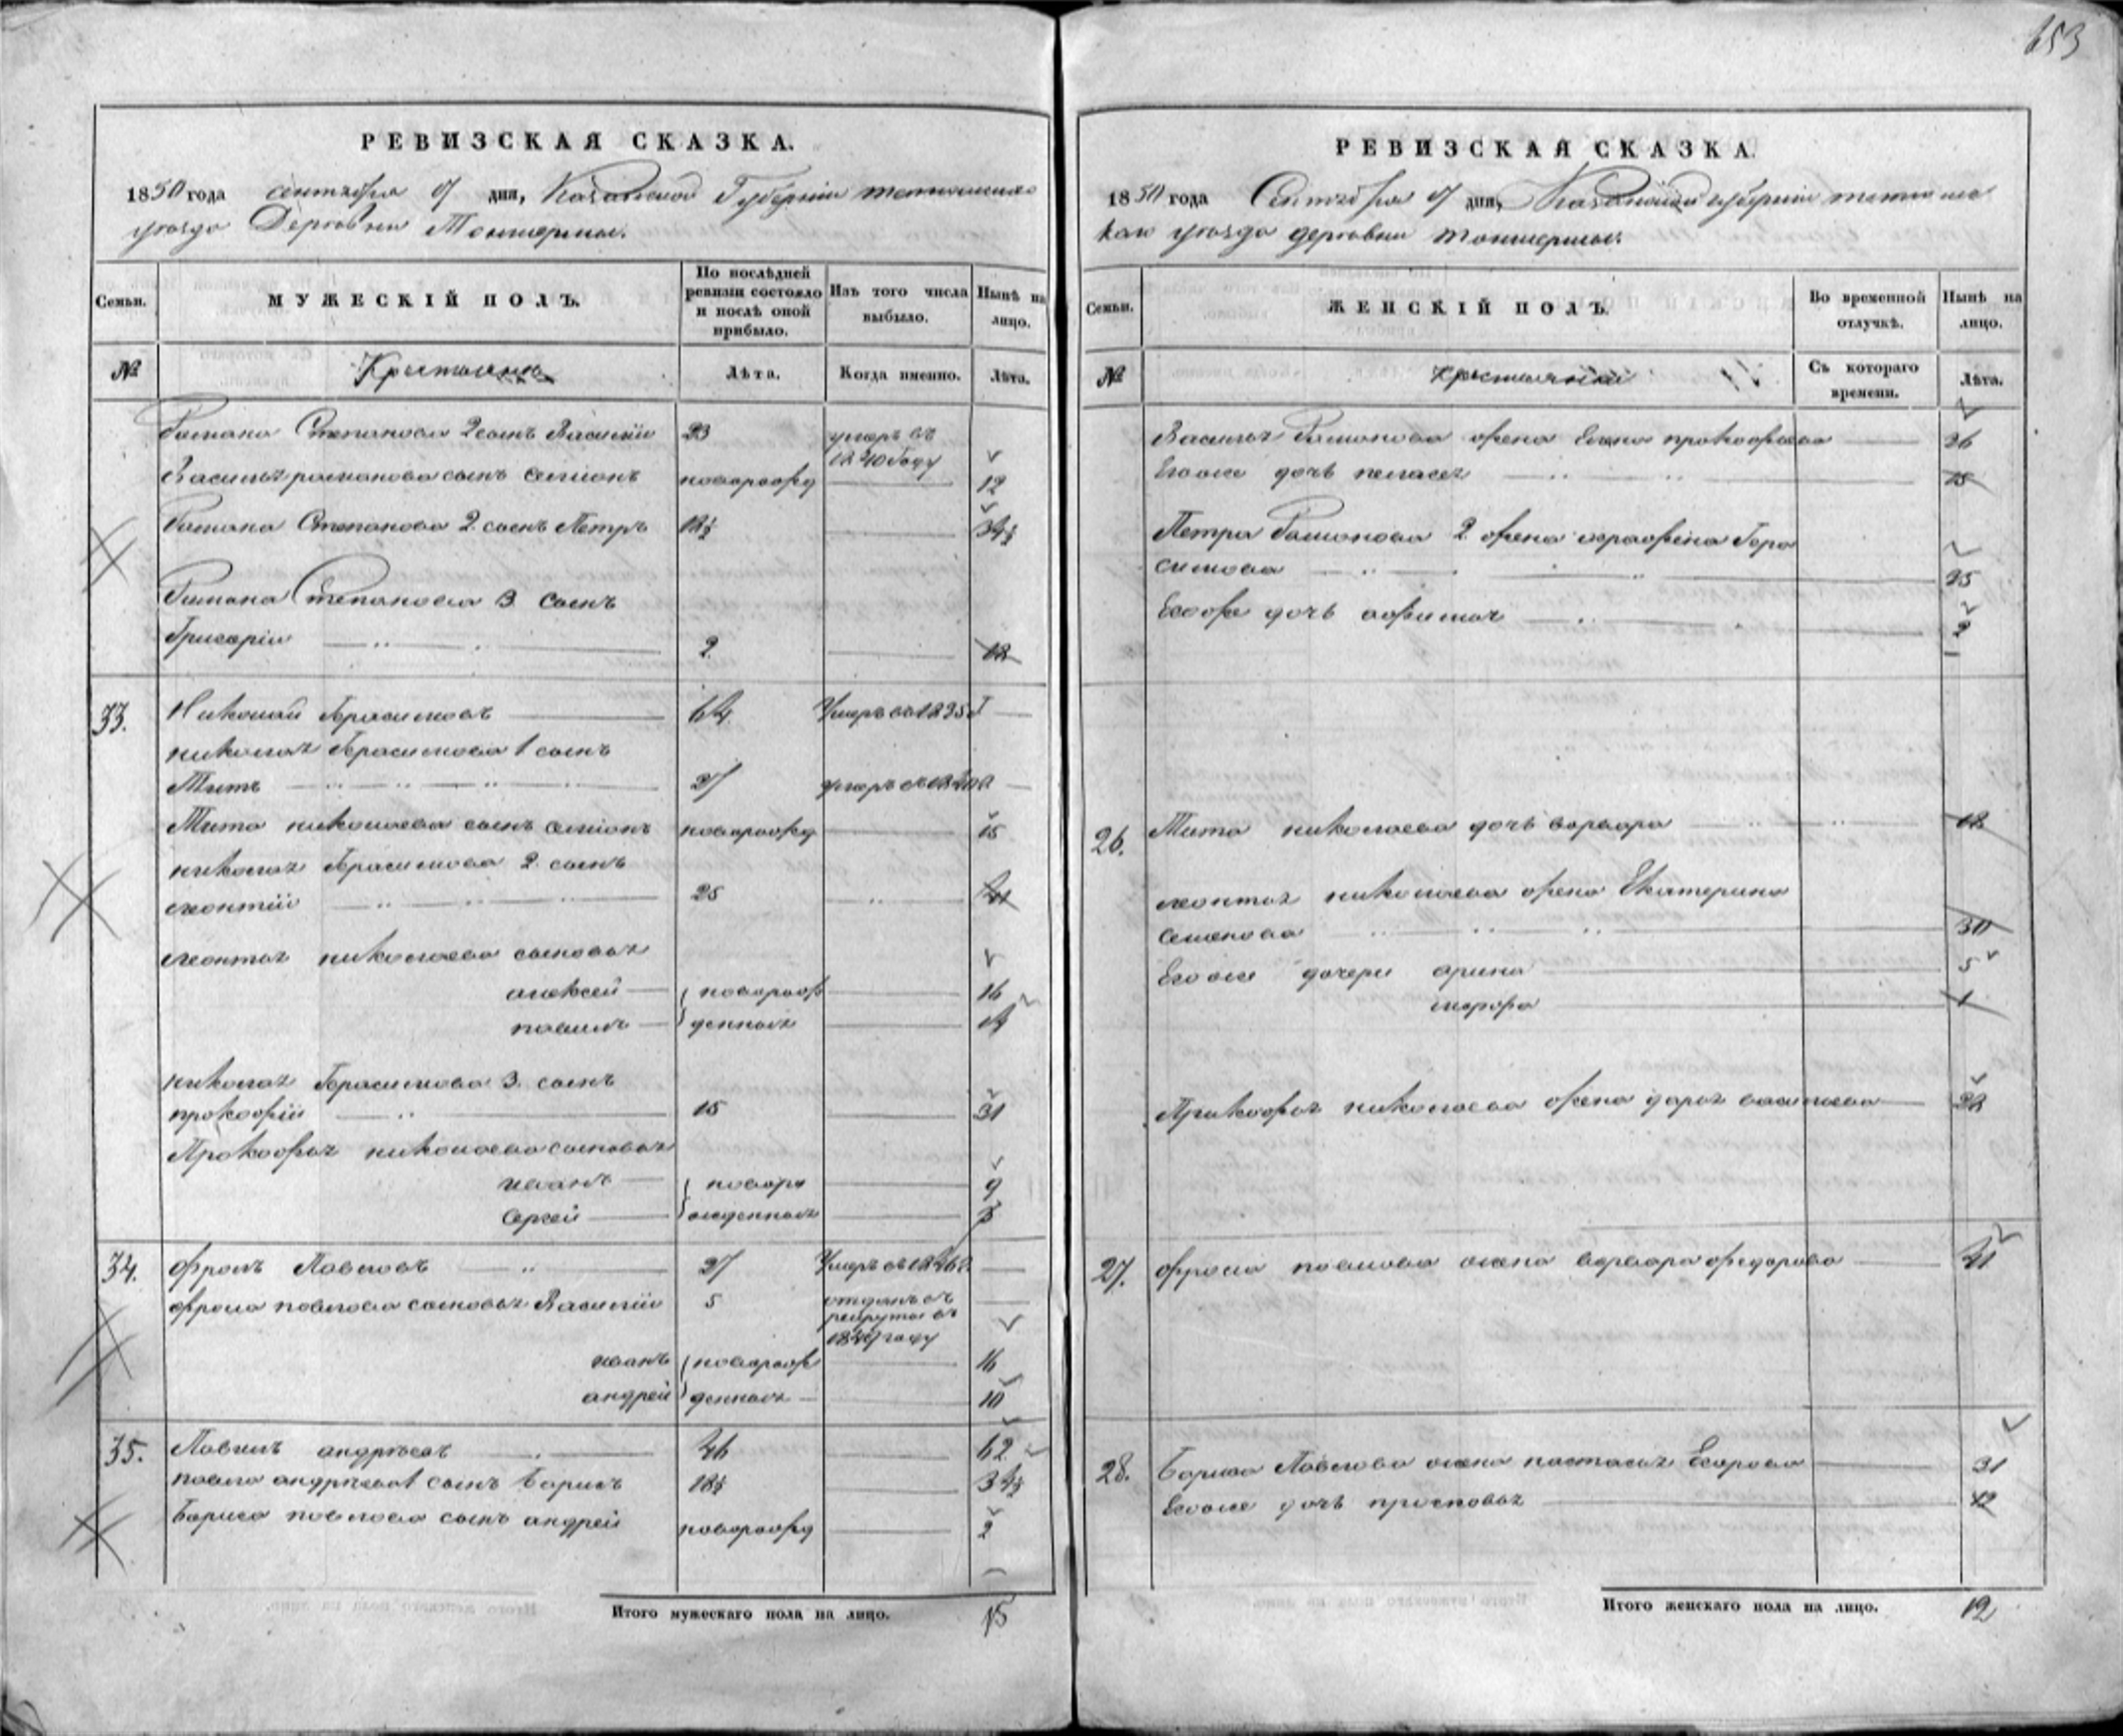 153
РЕВИЗСКАЯ СКАЗКА.
1850 года сентября дня, Казанской Губернiи тетюшскаго
уѣзда Деревни Тоншермы.
Семьи.
МУЖЕСКІЙ ПОЛЪ.
По послѣдней ревизіи состояло и послѣ оной прибыло.
Изъ того числа выбыло.
Нынѣ на лицо.
№
Крестьяне
Лѣта.
Когда именно.
Лѣта.
Романа Степанова 2 сынъ Василiй 23 умеръ въ 1840 году
Василья романова сынъ семiонъ новорожд 12
Романа Степанова 2. сынъ Петръ 18½ 34½
Романа Степанова 3 сынъ
Григорiи 2. 18
33. Николай Герасимовъ 64. Умеръ въ 1835
николая Герасимова 1 сынъ
Титъ 27 умеръ въ
Тита николаева сынъ семiонъ новорожд 15
николая Герасимова 2. сынъ
леонтiй 25 41
леонтья николаева сыновья
алексей новорож 16
павилъ денныя
николая Герасимова 3. сынъ
прокофiй 15 31
Прокофья николаева сыновья
иванъ новоро 9
Сергей жденныя 3
34. фролъ Павловъ 27 Умеръ въ
фрола павлова сыновья Василiй 5 отданъ въ рекруты въ году
иванъ новорож 16
андрей денныя 10
35. Павилъ андрѣевъ 46 62
павла андрѣева 1 сынъ Борисъ 18½ 34½
Бориса павлова сынъ андрей новорожд 2
Итого мужескаго пола на лицо. 15
РЕВИЗСКАЯ СКАЗКА.
1850 года Сентября дня, Казанской губернiи тетюшс
каго уѣзда деревни тоншермы.
Семьи.
ЖЕНСКІЙ ПОЛЪ.
Во временной отлучкѣ.
Нынѣ на лицо.
№
Крестьянки
Съ котораго времени.
Лѣта.
Василья Романова жена Елена прокофьева 36
Егоже дочь пелагея 15
Петра Романова 2 жена аграфена Гера
симова 35
Егоже дочь 2
26. Тита николаева дочь варвара 18
леонтья николаева жена Екатерина
семенова 30
Егоже дочери арина 5
1
Прокофья николаева жена дарья василева
27. фрола павлова жена варвара федорова 41
28. Бориса Павлова жена настасья Егорова 31
Егоже дочь прасковья 12
Итого женскаго пола на лицо. 12